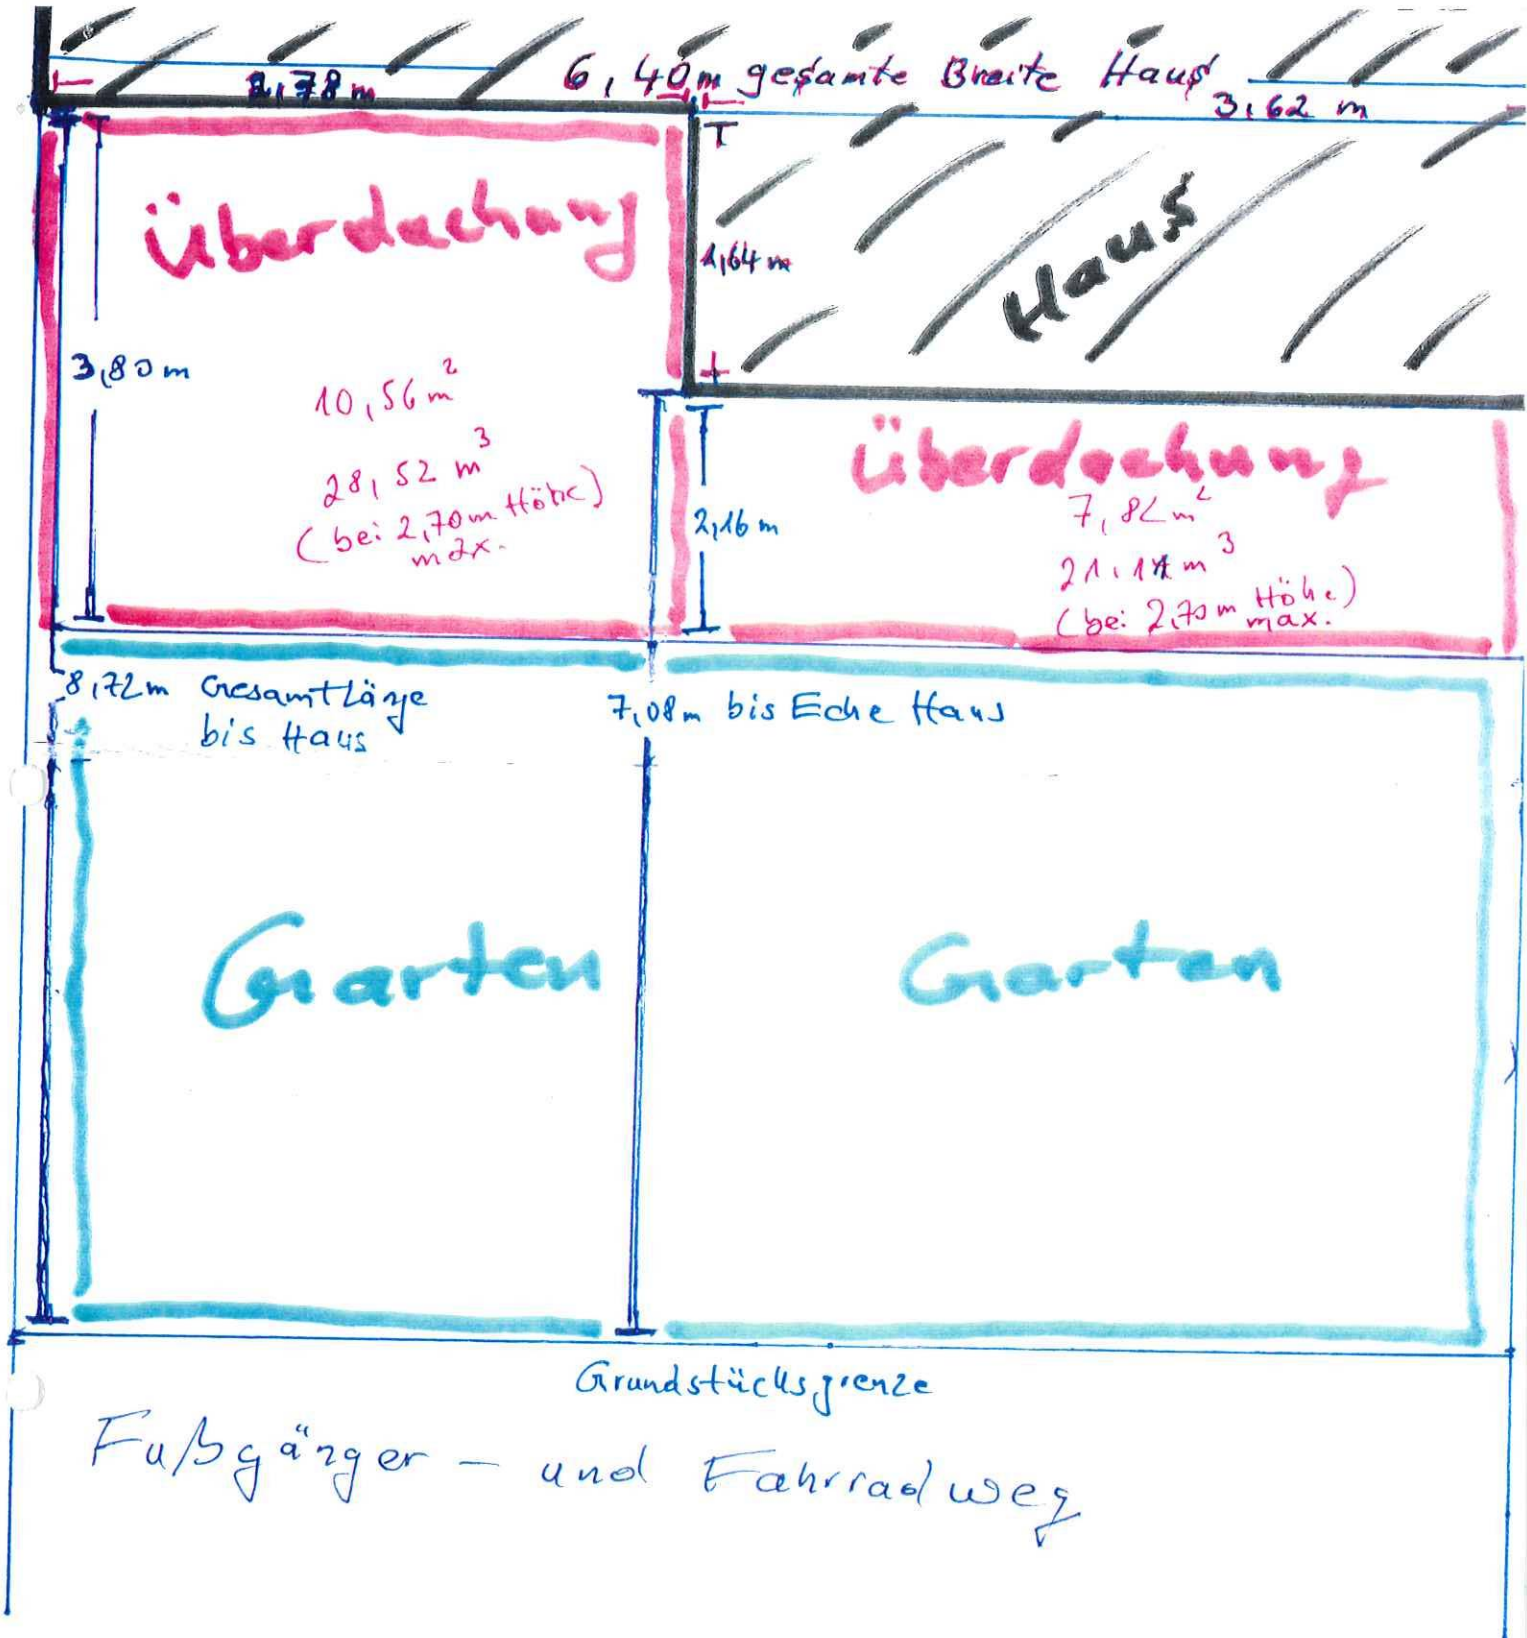 6,40m gesamte Breite Haus
2,78 m
3,62 m
Überdachung
1,64 m
Haus
3,80 m
10,56 m²
28,52 m³
(bei 2,70m Höhe)
max.
Überdachung
7,82 m²
21,11 m³
(bei 2,70m Höhe)
max.
2,16 m
8,72m Gesamtlänge
bis Haus
7,08m bis Ecke Haus
Garten
Garten
Grundstücksgrenze
Fußgänger – und Fahrradweg